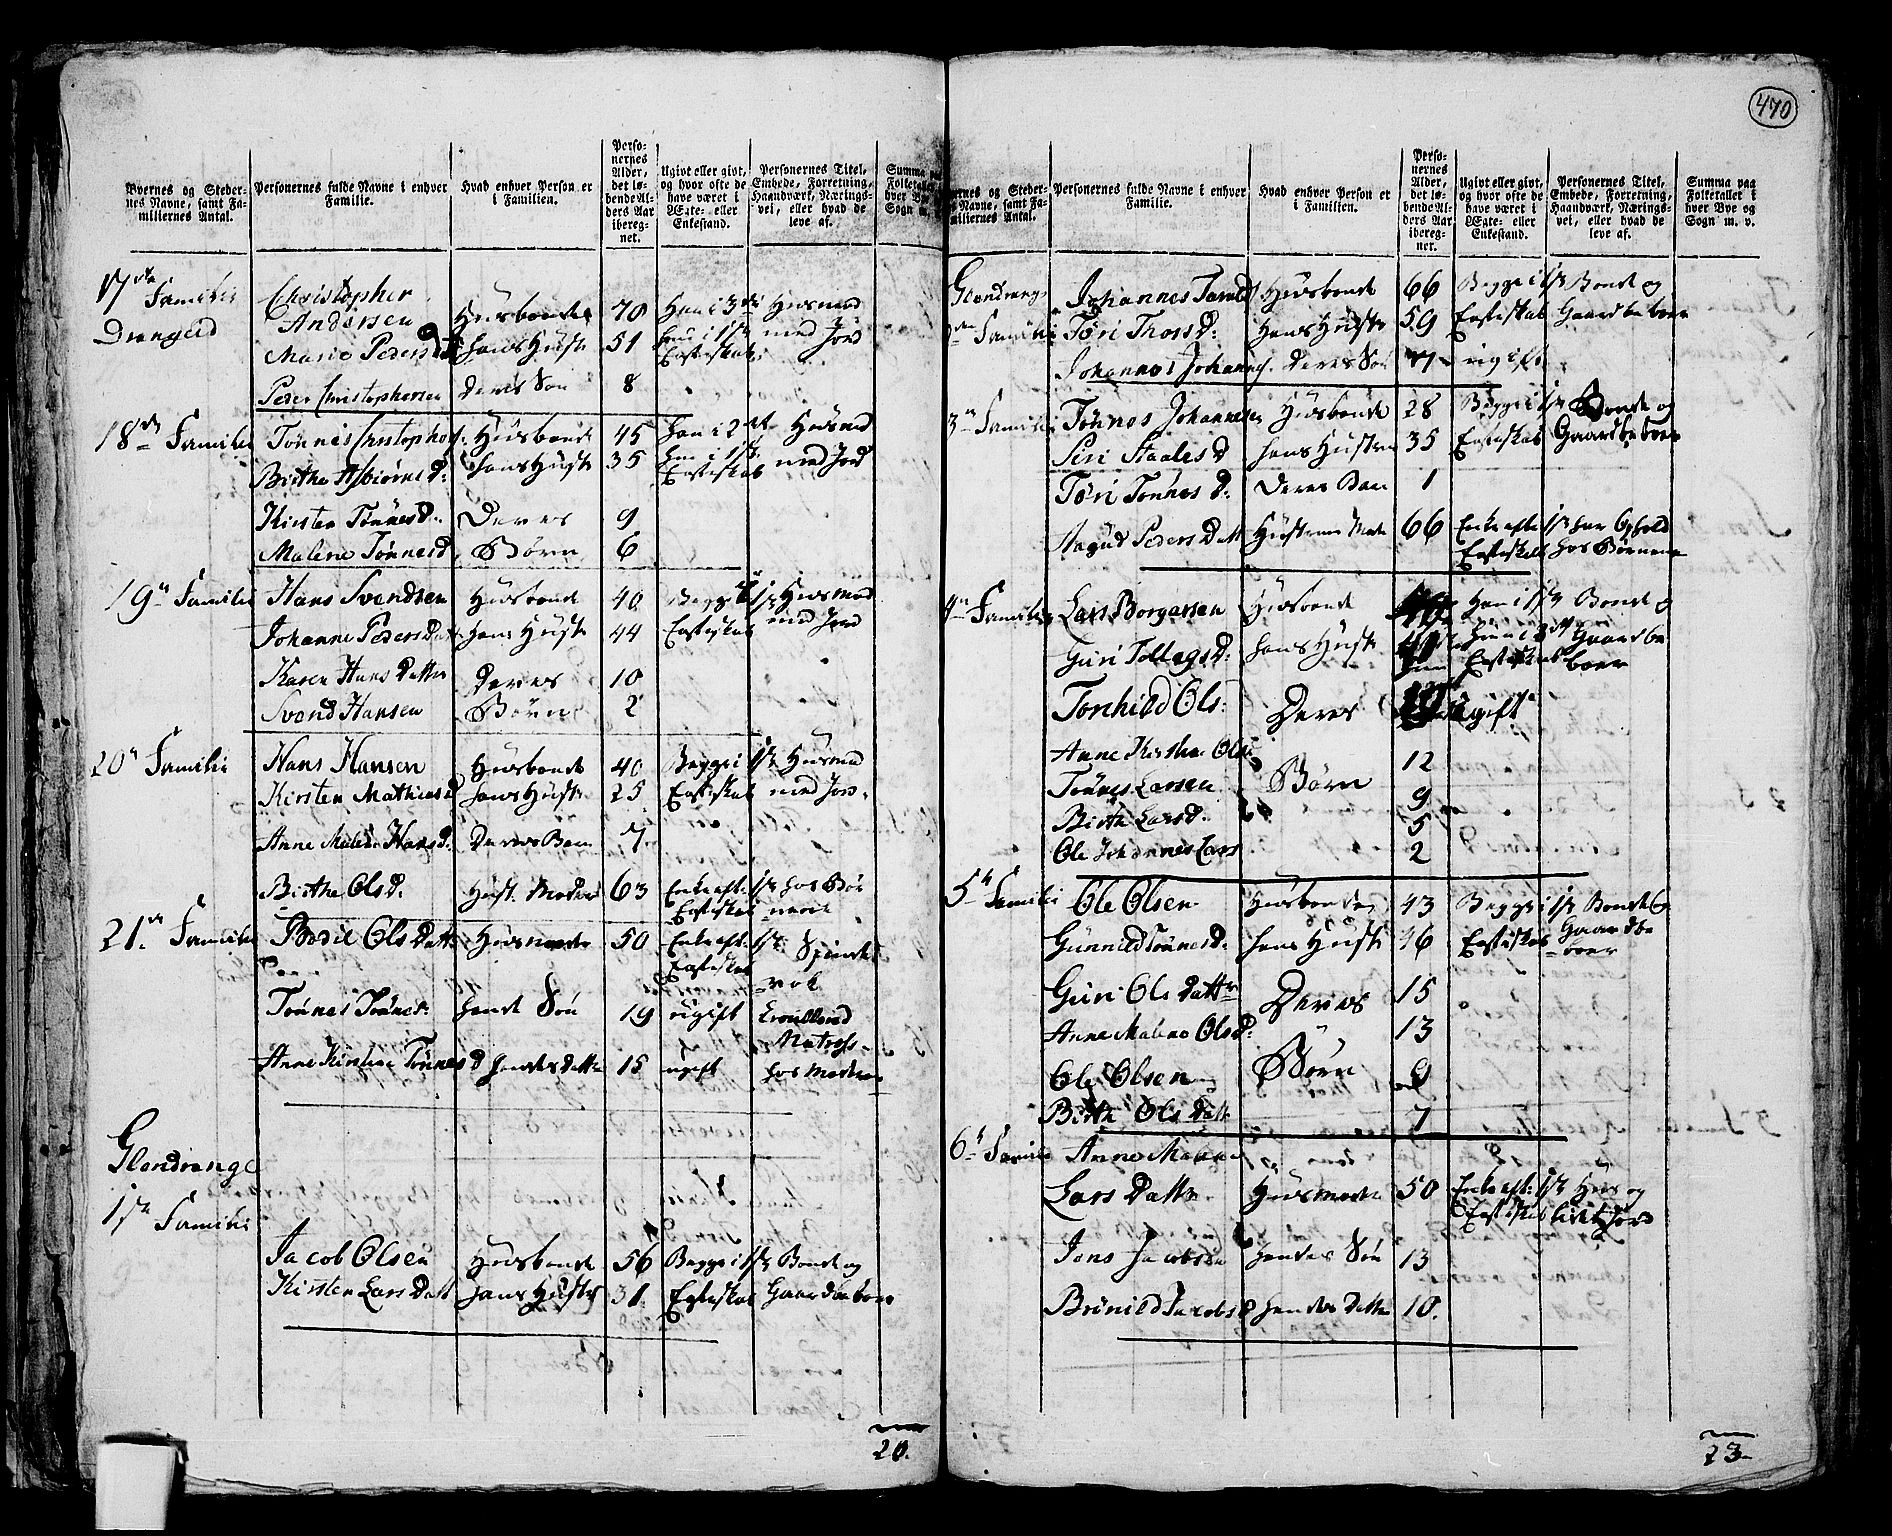 470
Byernes og Steder-
nes Navne, samt Fa-
miliernes Antal.
Personernes fulde Navne i enhver
Familie.
Hvad enhver Person er
i Familien.
Perso-
nernes
Alder,
det lø-
bende Al-
ders Aar
iberegnet-
net.
Ugivt eller givt,
og hvor ofte de
have været i
Ægte- eller
Enkestand.
Personernes Titel,
Embede, Forretning,
Haandværk, Nærings-
vei, eller hvad de
leve af.
Summa paa
Folketallet i
hver Bye og
Sogn m. v.
17de Familie
Drangeid
Christopher
Andersen Huusbonde 70 Han i 3die Huusmand
Marie Peders D hans Hustr 51 hun i 1ste med Jord
Egteskab
Peder Christophersen Deres Søn 8
18de Familie Tønnes Christophers. Huusbonde 45 han i 2det Huusmd
Birthe Asbiørns D: hans Hustr 35 hun i 1ste med Jord
Egteskab
Kirsten Tønnes D. Deres 9
Malene Tønnes D. Børn 6
19de Familie Hans Svendsen Huusbonde 40 Begge i 1ste Huusmd
Johanne Peders Datt hans Hustr 44 Egteskab med Jord
Karen Hans Datter Deres 10
Svend Hansen Børn 2
20de Familie Hans Hansen Huusbonde 40 Begge i 1ste Huusmd
Kirsten Mathias D hans Hustr 25 Egteskab med Jor.
Anne Malene Hans D. Deres Barn 7
Birthe Ols D. Hust. Moder 63 Enke eft. 1ste hos Bør
Egteskab nene
21de Familie Bodil Ols Datt: Huusmoder 50 Enke eft. 1ste Spinder
Egteskab
Tønnes Tønnes: hendes Søn 19 ugift Enrollered
Matros
Anne Kirstine Tønnes D hendes Datter 15 ugift hos Moderen
Glendrange
1ste Familie
Jacob Olsen Huusbonde 56 Begge i 1ste Bonde og
Kirsten Lars Datt hans Hustr 31 Egteskab Gaardbeboer
20.
Byernes og Steder-
nes Navne, samt Fa-
miliernes Antal.
Personernes fulde Navne i enhver
Familie.
Hvad enhver Person er
i Familien.
Perso-
nernes
Alder,
det lø-
bende Al-
ders Aar
ibereg-
net.
Ugivt eller givt,
og hvor ofte de
have været i
Ægte- eller
Enkestand.
Personernes Titel,
Embede, Forretning,
Haandværk, Nærings-
vei, eller hvad de
leve af.
Summa paa
Folketallet i
hver Bye og
Sogn m. v.
Glendrange Johannes Huusbonde 66 Begge i 1ste Bonde og
2den Familie Tøri Thoss D: hans Hustr 59 Egteskab Gaardbeboer
Johannes Johannes. Deres Søn 17 ugift
3die Familie Tønnes Johannesen Huusbonde 28 Begge i 1ste Bonde og
Siri Staales D hans Hustru 35 Egteskab Gaardbeboer
Tøri Tønnes D: Deres Barn 1
Peders Datt Hustruens Mod 66 Enke efter 1ste har Ophold
Egteskab hos Børnene
4de Familie Lars Borgersen Huusbonde Han i 1ste Bonde og
Guri Tollags D: hans Hustr Hun i 2det Gaardbe
Egteskab boer
Tonhild Ols: Deres ugift
Anne Kirstine Ols 12
Tønnes Larsen Børn 9
Birthe Lars D. 5
Ole Johannes Lars 2
5te Familie Ole Olsen Huusbonde 43 Begge i 1ste Bonde og
Gunnild Tønnes D. hans Hustr 46 Egteskab Gaardbe
boer
Guri Ols Datter Deres 15
Anne Malene Ols D: 13
Ole Olsen Børn 9
Birthe Ols Datt 7
6te Familie Anne Maria
Lars Datter Huusmoder 50 Enke eft: 1ste Huus og
Egteskab lidt Jord
Jens Jacobsen hendes Søn 13
Brynild Jacobs D hendes Datter 10.
23.